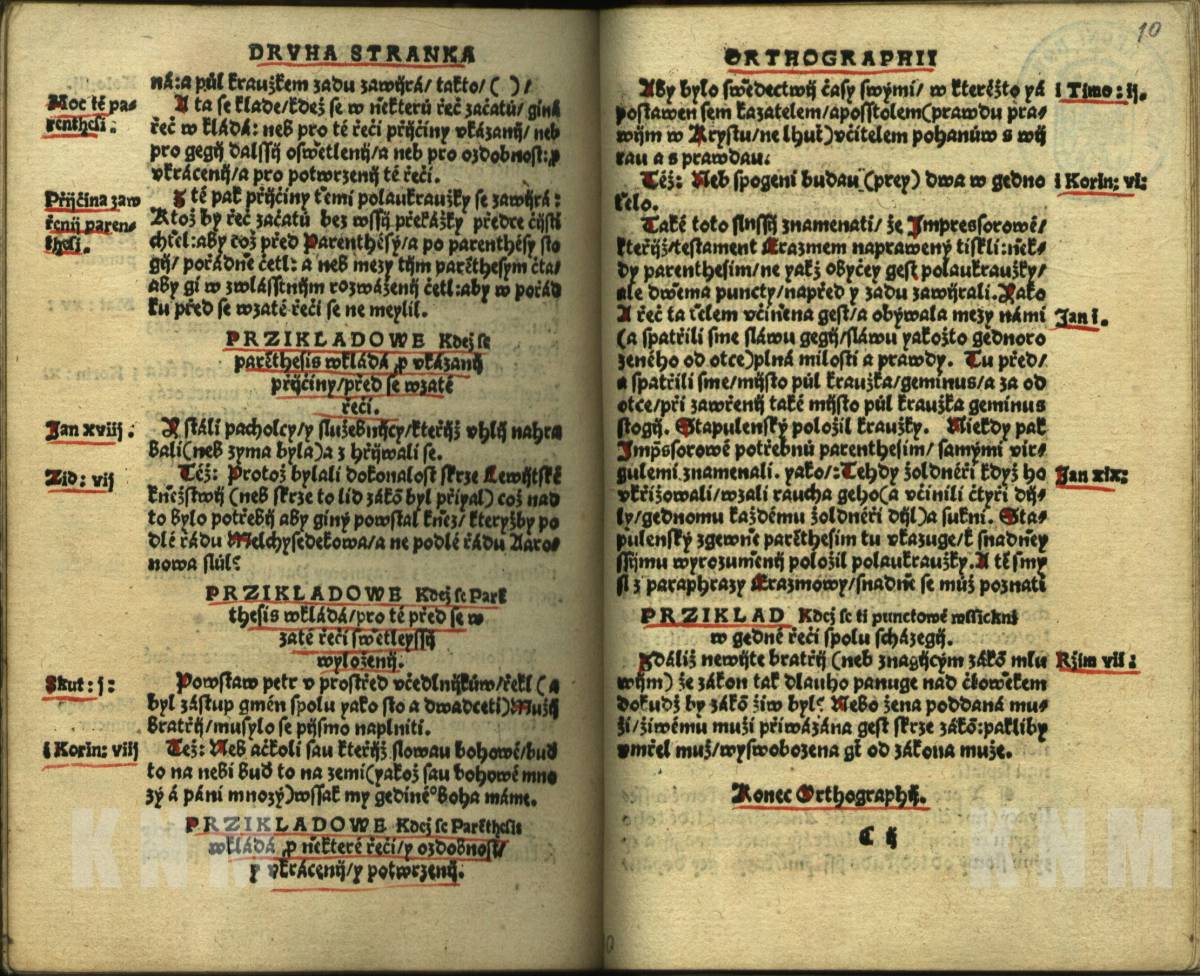 DRVHA STRANKA
ná:a půl kraužkem zadu zawijrá/ takto/( )/
Moc té pa-
renthesi:
A ta se klade/kdež se w některú řeč začatú/ giná
řeč w kládá: neb pro té řeči přijčiny vkázaníj/ neb
pro gegij dalssij oswětlenij/a neb pro ozdobnost:p
vkrácenij/a pro potwrzenij té řeči.
Přijčina zaw
řenij paren-
thesi.
Z té pak přijčiny těmi polaukraužky se zawijrá:
Ktož by řeč začatú bez wssij překážky předce čijsti
chtěl:aby což před Parenthésy/a po parenthésy sto
gij/ pořádně četl: a neb mezy tijm parēthesym čta/
aby gi w zwlásstnijm rozwáženij četl:aby w pořád
ku před se wzaté řeči se ne meylil.
PRZIKLADOWE Kdej se
parēthesis wkládá p vkázanij
přijčiny/před se wzaté
řeči.
Jan xviij:
Y stáli pacholcy/y služebnijcy/kteřijž vhlij nahra
bali(neb zyma byla)a z hřijwali se.
Zid: vij
Též: Protož bylali dokonalost skrze Lewijtské
kněžstwij (neb skrze to lid zákō byl přiyal) což nad
to bylo potřebij aby giný powstal kněz/ kteryžby po
dlé řádu Melchysedekowa/a ne podlé řádu Aaro-
nowa slúl?
PRZIKLADOWE Kdej se Parē
thesis wkládá/pro té před se w
zaté řeči swětleyssij
wyloženij.
Skut: j:
Powstaw petr v prostřed včedlnijkúw/řekl (a
byl zástup gmén spolu yako sto a dwadceti)Mužij
bratřij/musylo se pijsmo naplniti.
i Korin: viij
Též: Neb ačkoli sau kteřijž slowau bohowé/buď
to na nebi buď to na zemi(yakož sau bohowé mno
zý á páni mnozý)wssak my gediné°boha máme.
PRZIKLADOWE Kdej se Parēthesis
wkládá p některé řeči/y ozdobnost/
y vkrácenij/y potwrzenij.
10
ORTHOGRAPHII
Aby bylo swědectwij časy swými/ w kteréžto yá
i Timo: ij.
postawen sem kazatelem/aposstolem(prawdu pra-
wijm w Krystu/ne lhu)včitelem pohanúw s wij
rau a s prawdau.
Též: Neb spogeni budau (prey) dwa w gedno
i Korin: vi:
tělo.
Také toto slussij znamenati/ že Jmpressorowé/
kteřijž/testament Erazmem naprawený tiskli:něk-
dy parenthesim/ne yakž obyčey gest polaukraužky/
ale dwěma puncty/napřed y zadu zawijrali. Yako
A řeč ta tělem včiněna gest/a obýwala mezy námi
Jan i.
(a spatřili sme sláwu gegij/sláwu yakožto gednoro
zeného od otce)plná milosti a prawdy. Tu před/
a spatřili sme/mijsto půl kraužka/geminus/a za od
otce/při zawřenij také mijsto půl kraužka geminus
stogij. Stapulenský položil kraužky. Niekdy pak
Jmpssorowé potřebnú parenthesim/ samými vir-
gulemi znamenali. yako/:Tehdy žoldnéři když ho
Jan xix:
vkřižowali/wzali raucha geho(a včinili čtyři dij-
ly/gednomu každému žoldnéři dijl)a sukni. Sta-
pulenský zgewně parēthesim tu vkazuge/k snadněy
ssijmu wyrozuměnij položil polaukraužky. A tē smy
sl z paraphrazy Erazmowy/snadně se můž poznati
PRZIKLAD Kdej se ti punctowé wssickni
w gedné řeči spolu scházegij.
Zdáliž newijte bratřij (neb znagijcým zákō mlu
Rzim vii:
wijm) že zákon tak dlauho panuge nad čłowěkem
dokudž by zákō žiw byl? Nebo žena poddaná mu-
ži/žiwému muži přiwázána gest skrze zákō:pakliby
vmřel muž/wyswobozena gt od zákona muže.
Konec Orthographij.
C ij